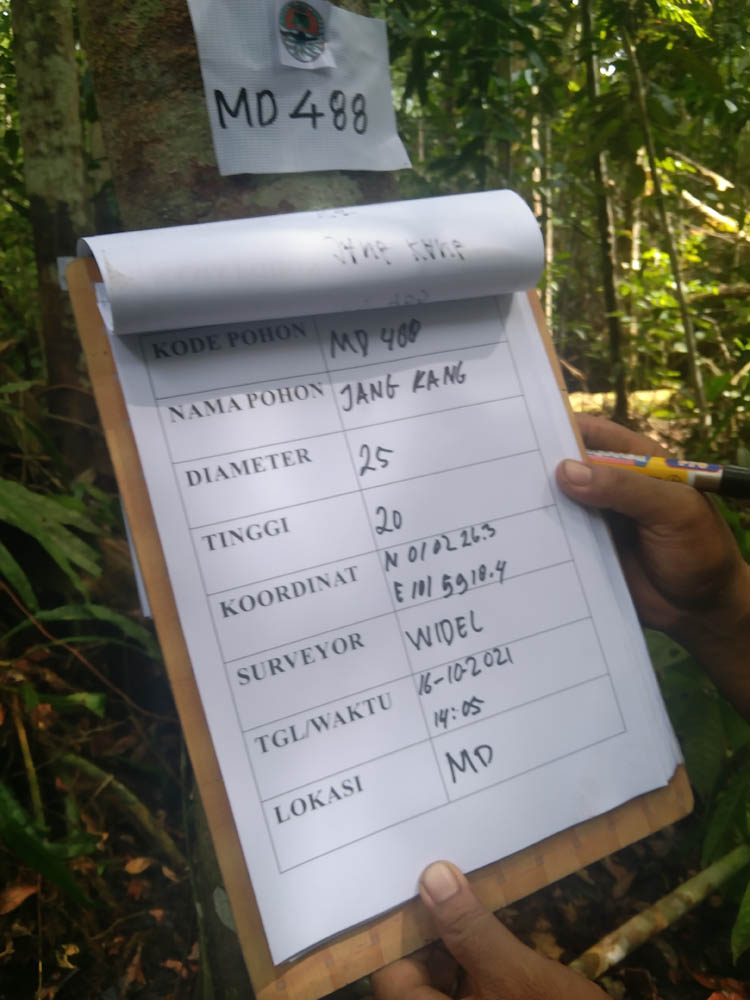 MD 488
JANG KANG
KODE POHON MD 488
NAMA POHON JANG KANG
DIAMETER 25
TINGGI 20
KOORDINAT N 01 02 26.3
E 101 59 18.4
SURVEYOR WIDEL
TGL/WAKTU 16-10-2021
14:05
LOKASI MD